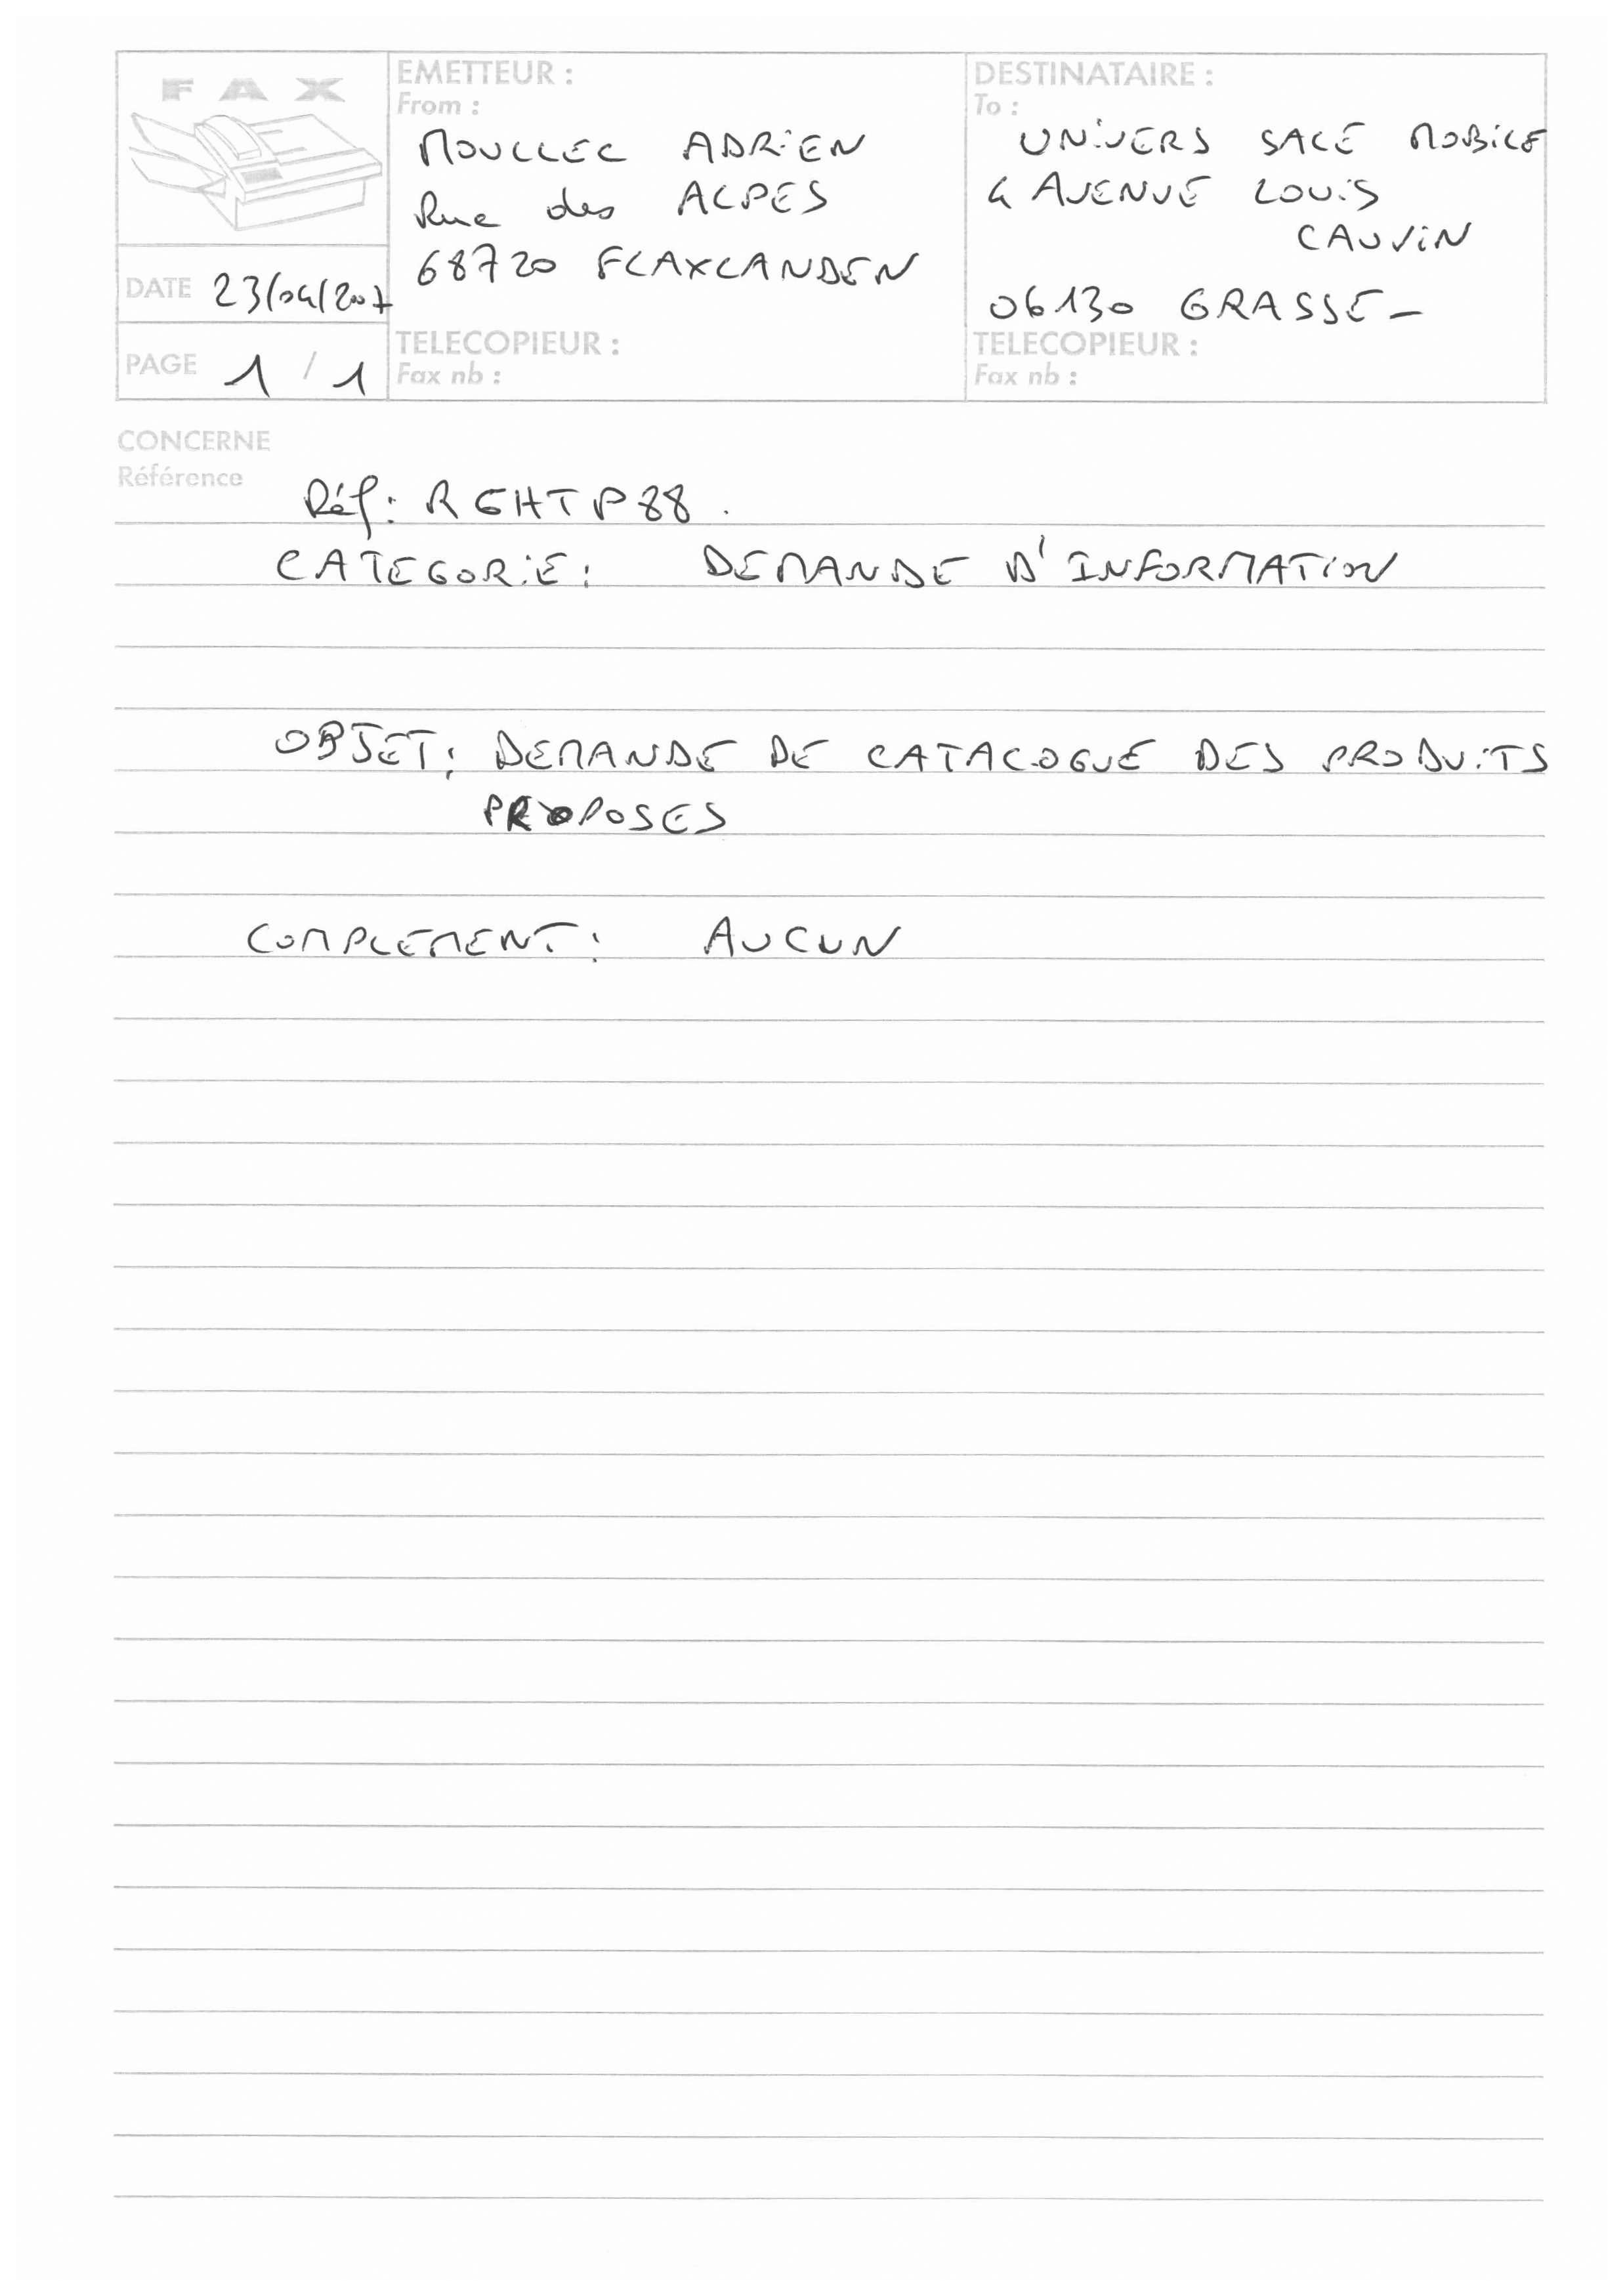 FAX
EMETTEUR :
From :
MOULLEC ADRIEN
Rue des ALPES
68720 FLAXLANDEN
TELECOPIEUR :
Fax nb :
DESTINATAIRE :
To :
UNIVERS SALE MOBILE
4 AVENUE LOUIS
CAUVIN
06130 GRASSE -
TELECOPIEUR :
Fax nb :
DATE 23/04/2007
PAGE 1 / 1
CONCERNE
Référence
Réf: RGHTP88.
CATEGORIE: DEMANDE D'INFORMATION
OBJET: DEMANDE DE CATALOGUE DES PRODUITS
PROPOSES
COMPLEMENT: AUCUN